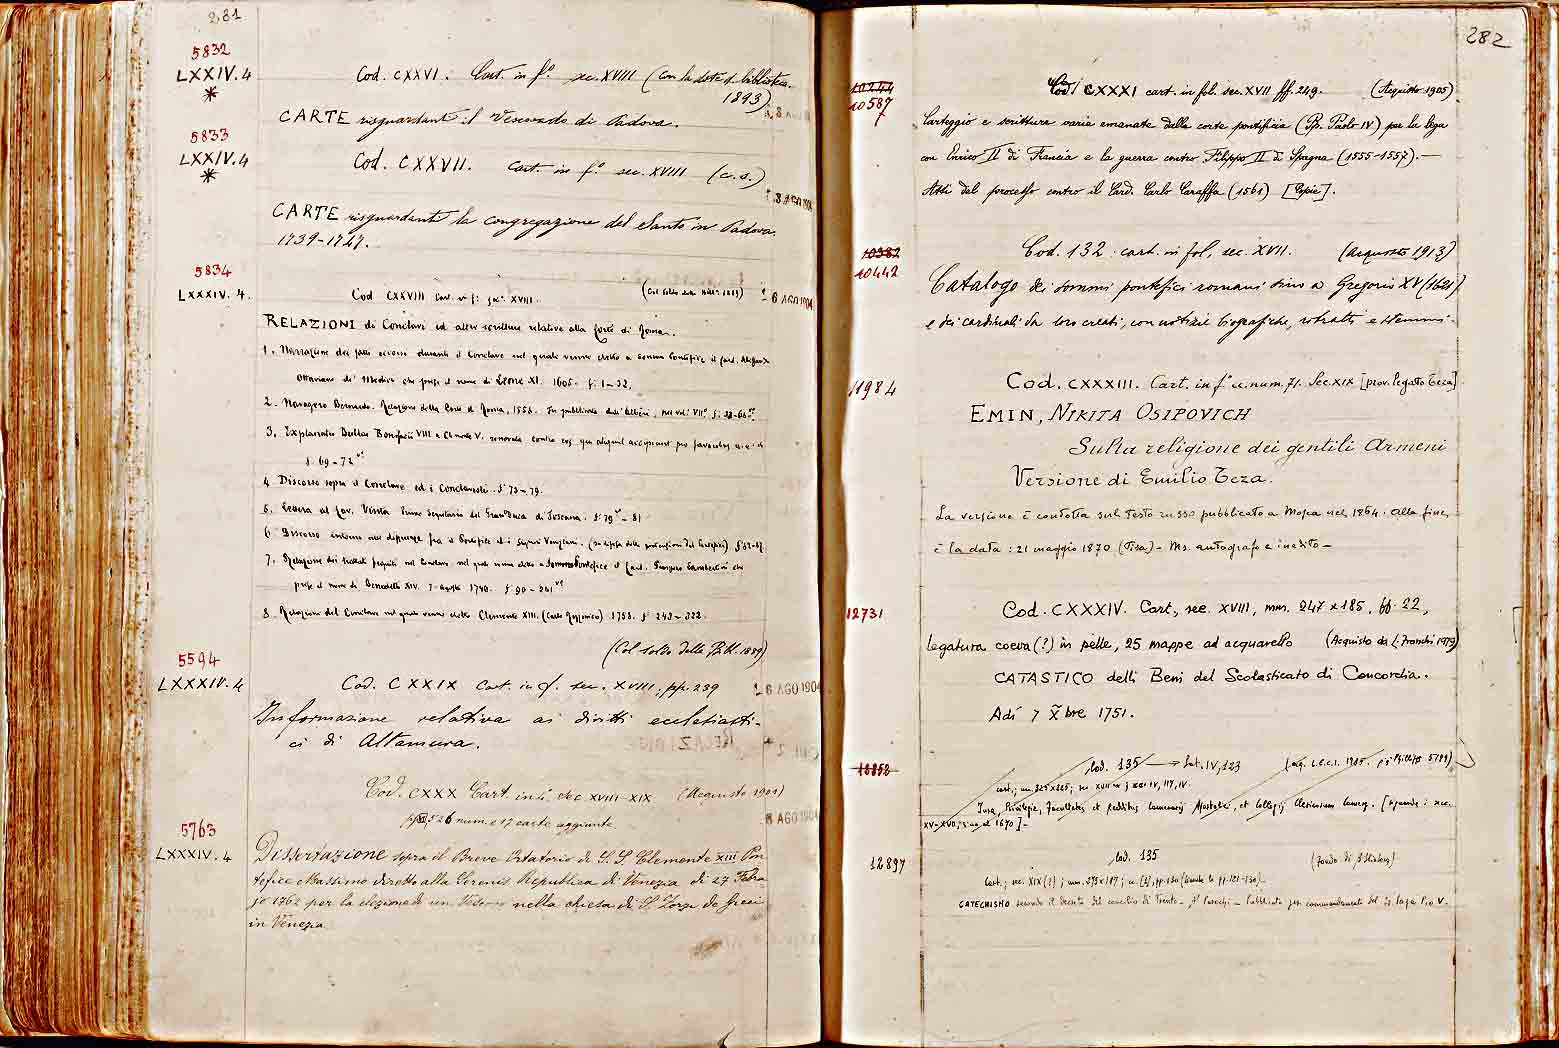 281
5832
LXXIV. 4
*
Cod. CXXVI. Cart. in f.º sec. XVIII (con la dote d. biblioteca.
1893)
CARTE risguardanti il Vescovado di Padova.
5833
LXXIV. 4
*
Cod. CXXVII. Cart. in f.º sec. XVIII (c. s.)
CARTE risguardanti la congregazione del Santo in Padova.
1739-1747.
5834
LXXXIV. 4.
Cod CXXVIII Cart. in f.º sec. XVIII.
6 AGO 1904
RELAZIONI di Conclavi ed altre scritture relative alla Corte di Roma.
1. Narrazione dei fatti occorsi durante il Conclave nel quale venne eletto a sommo Pontefice il Card. Alessandro
Ottaviano de' Medici che prese il nome di Leone XI. 1605. f. 1-32.
2. Navagero Bernardo. Relazione della Corte di Roma, 1558.
3. Explanatio Bullae Bonifacii VIII e Clemente V.
f. 69-72
4 Discorso sopra il Conclave ed i Conclavisti. f. 73-79.
5. Lettera al Cav. Vinta Primo Segretario del Gran Duca di Toscana. f. 79 - 81
6 Discorso intorno alle differenze fra il Pontefice et i Signori Veneziani.
7. Relazione dei trattati seguiti nel Conclave nel quale venne eletto a Sommo Pontefice il Card. Prospero Lambertini che
prese il nome di Benedetto XIV. 7 agosto 1740. f. 90 - 241
8. Relazione del Conclave nel quale venne eletto Clemente XIII. (Carlo Rezzonico) 1758. f. 243-322.
(Col solto della Bibl. 1889)
5594
LXXXIV. 4
Cod. CXXIX Cart. in f. sec. XVIII, pp. 239
6 AGO 1904
Informazione relativa ai diritti ecclesiasti-
ci di Altamura.
Cod. CXXX Cart. in 4. sec XVIII-XIX (Acquisto 1901)
526 num. e 17 carte aggiunte
5763
LXXXIV. 4
8 AGO 1904
Dissertazione sopra il Breve Ortatorio di S. S. Clemente XIII Pon-
tefice Massimo diretto alla Serenis. Republica di Venezia di 27 Febra-
jo 1762 per la elezione di un Vescovo nella chiesa di S. Zorzi de Greci
in Venezia
282
10244
10587
Cod. CXXXI cart. in fol. sec. XVII ff. 249. (Acquisto 1905)
Carteggio e scritture varie emanate dalla corte pontificia (Pp. Paolo IV) per la lega
con Enrico II di Francia e la guerra contro Filippo II di Spagna (1555-1557).—
Atti del processo contro il Card. Carlo Caraffa (1561) [Copie].
10382
10442
Cod. 132. cart. in fol. sec. XVII. (Acquisto 1913)
Catalogo dei sommi pontefici romani sino a Gregorio XV (1621)
e dei cardinali da loro creati, con notizie biografiche, ritratti e stemmi.
11984
Cod. CXXXIII. Cart. in f.º cc. num. 71. Sec. XIX [prov. legato Teza].
EMIN, NIKITA OSIPOVICH
Sulla religione dei gentili Armeni
Versione di Emilio Teza.
La versione è condotta sul testo russo pubblicato a Mosca nel 1864. Alla fine
è la data: 21 maggio 1870 (Pisa) - Ms. autografo e inedito -
12731
Cod. CXXXIV. Cart., sec. XVIII, mm. 247 x 185, ff. 22,
legatura coeva (?) in pelle, 25 mappe ad acquarello (Acquisto da L. Franchi 1979)
CATASTICO delli Beni del Scolasticato di Concordia.
Adi 7 Xbre 1751.
Cod. 135 → Lat. IV, 123
Jura, Privilegia, Facultates et redditus
XV-XVII, sino al 1670]-
12897
Cod. 135 (Fondo di Biblioteca)
Cart.; sec. XIX (?); mm. 275x187;
CATECHISMO secondo il decreto del concilio di Trento - Ai Parochi - Pubblicato per commandamento del S. Papa Pio V.